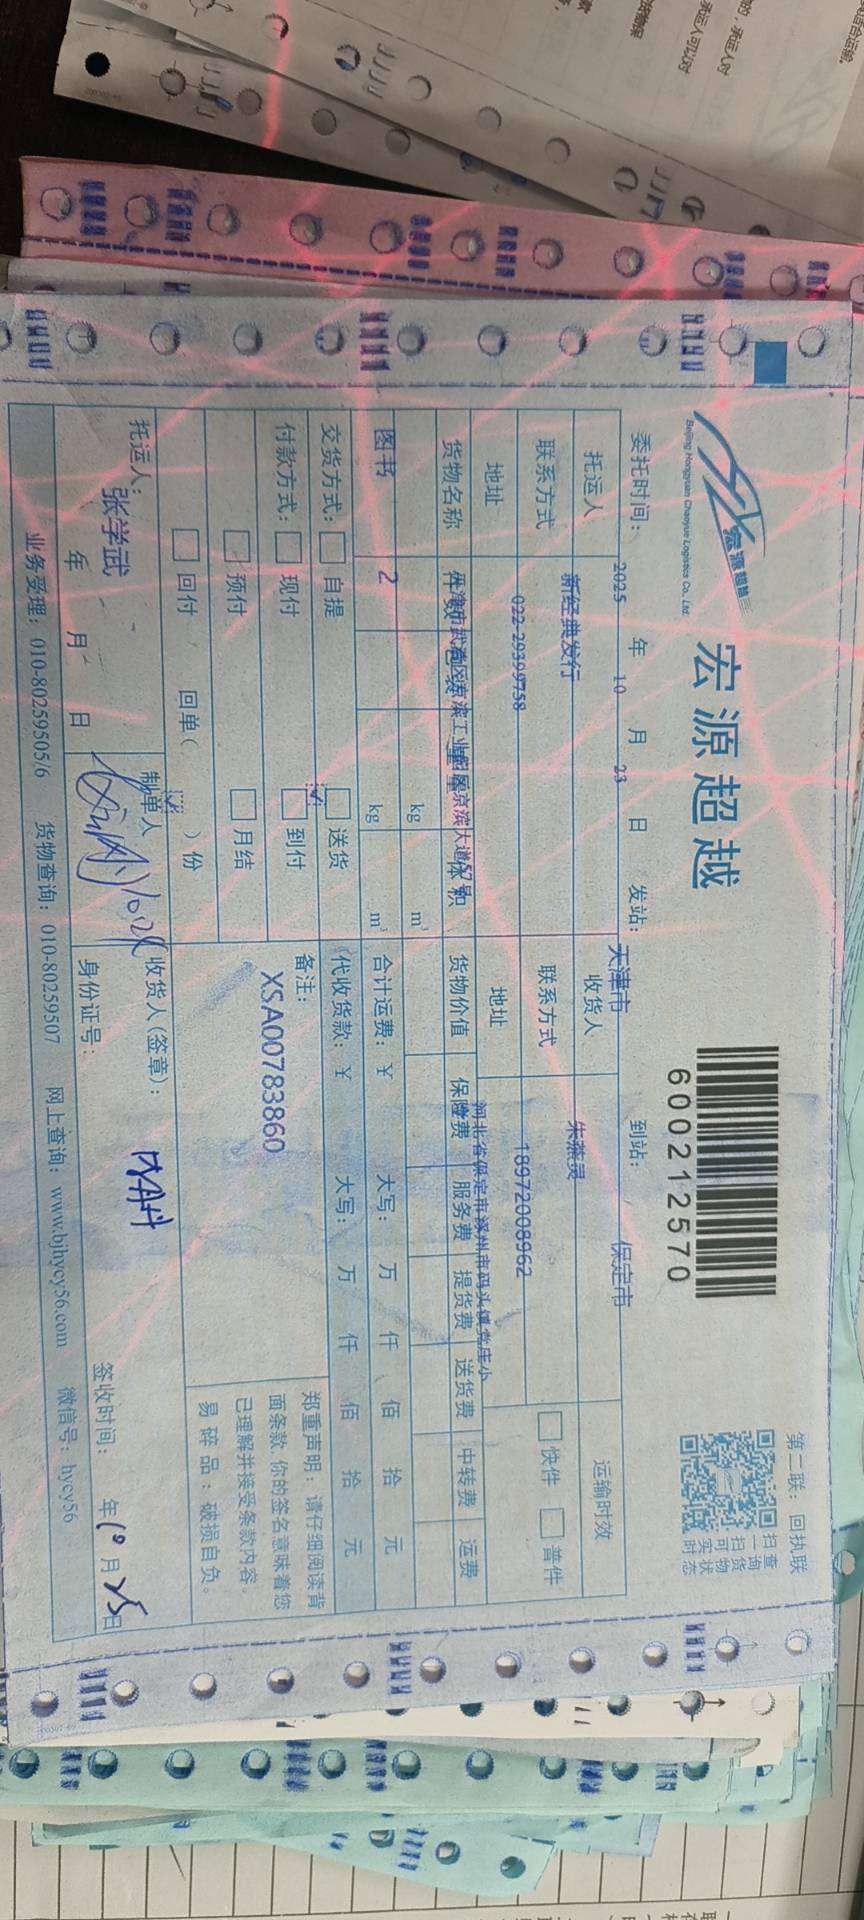 宏源超越
Beijing Hongyuan Chaoyue Logistics Co., Ltd.
宏源超越
600212570
第二联：回执联
扫一扫可实时
查询货物状态
委托时间： 2025 年 10 月 23 日 发站： 天津市 到站： 保定市
托运人 新经典发行 收货人 朱燕灵 运输时效
联系方式 022-29399758 联系方式 18972008962 快件 普件
地址 地址 河北省保定市涿州市码头镇
货物名称 货物价值 保险费 服务费 提货费 送货费 中转费 运费
kg m³
图书 2 kg m³ 合计运费：¥ 大写： 万 仟 佰 拾 元
交货方式： 自提 送货 代收货款：¥ 大写： 万 仟 佰 拾 元
付款方式： 现付 到付 备注：
XSA00783860
预付 月结
回付 回单（ ）份
郑重声明：请仔细阅读背
面条款 你的签名意味着您
已理解并接受条款内容。
易碎品：破损自负。
托运人： 张学武 制单人 收货人（签章）：
年 月 日 身份证号： 签收时间： 年 10 月 25 日
业务受理：010-80259505/6 货物查询：010-80259507 网上查询：www.bjhycy56.com 微信号：hycy56